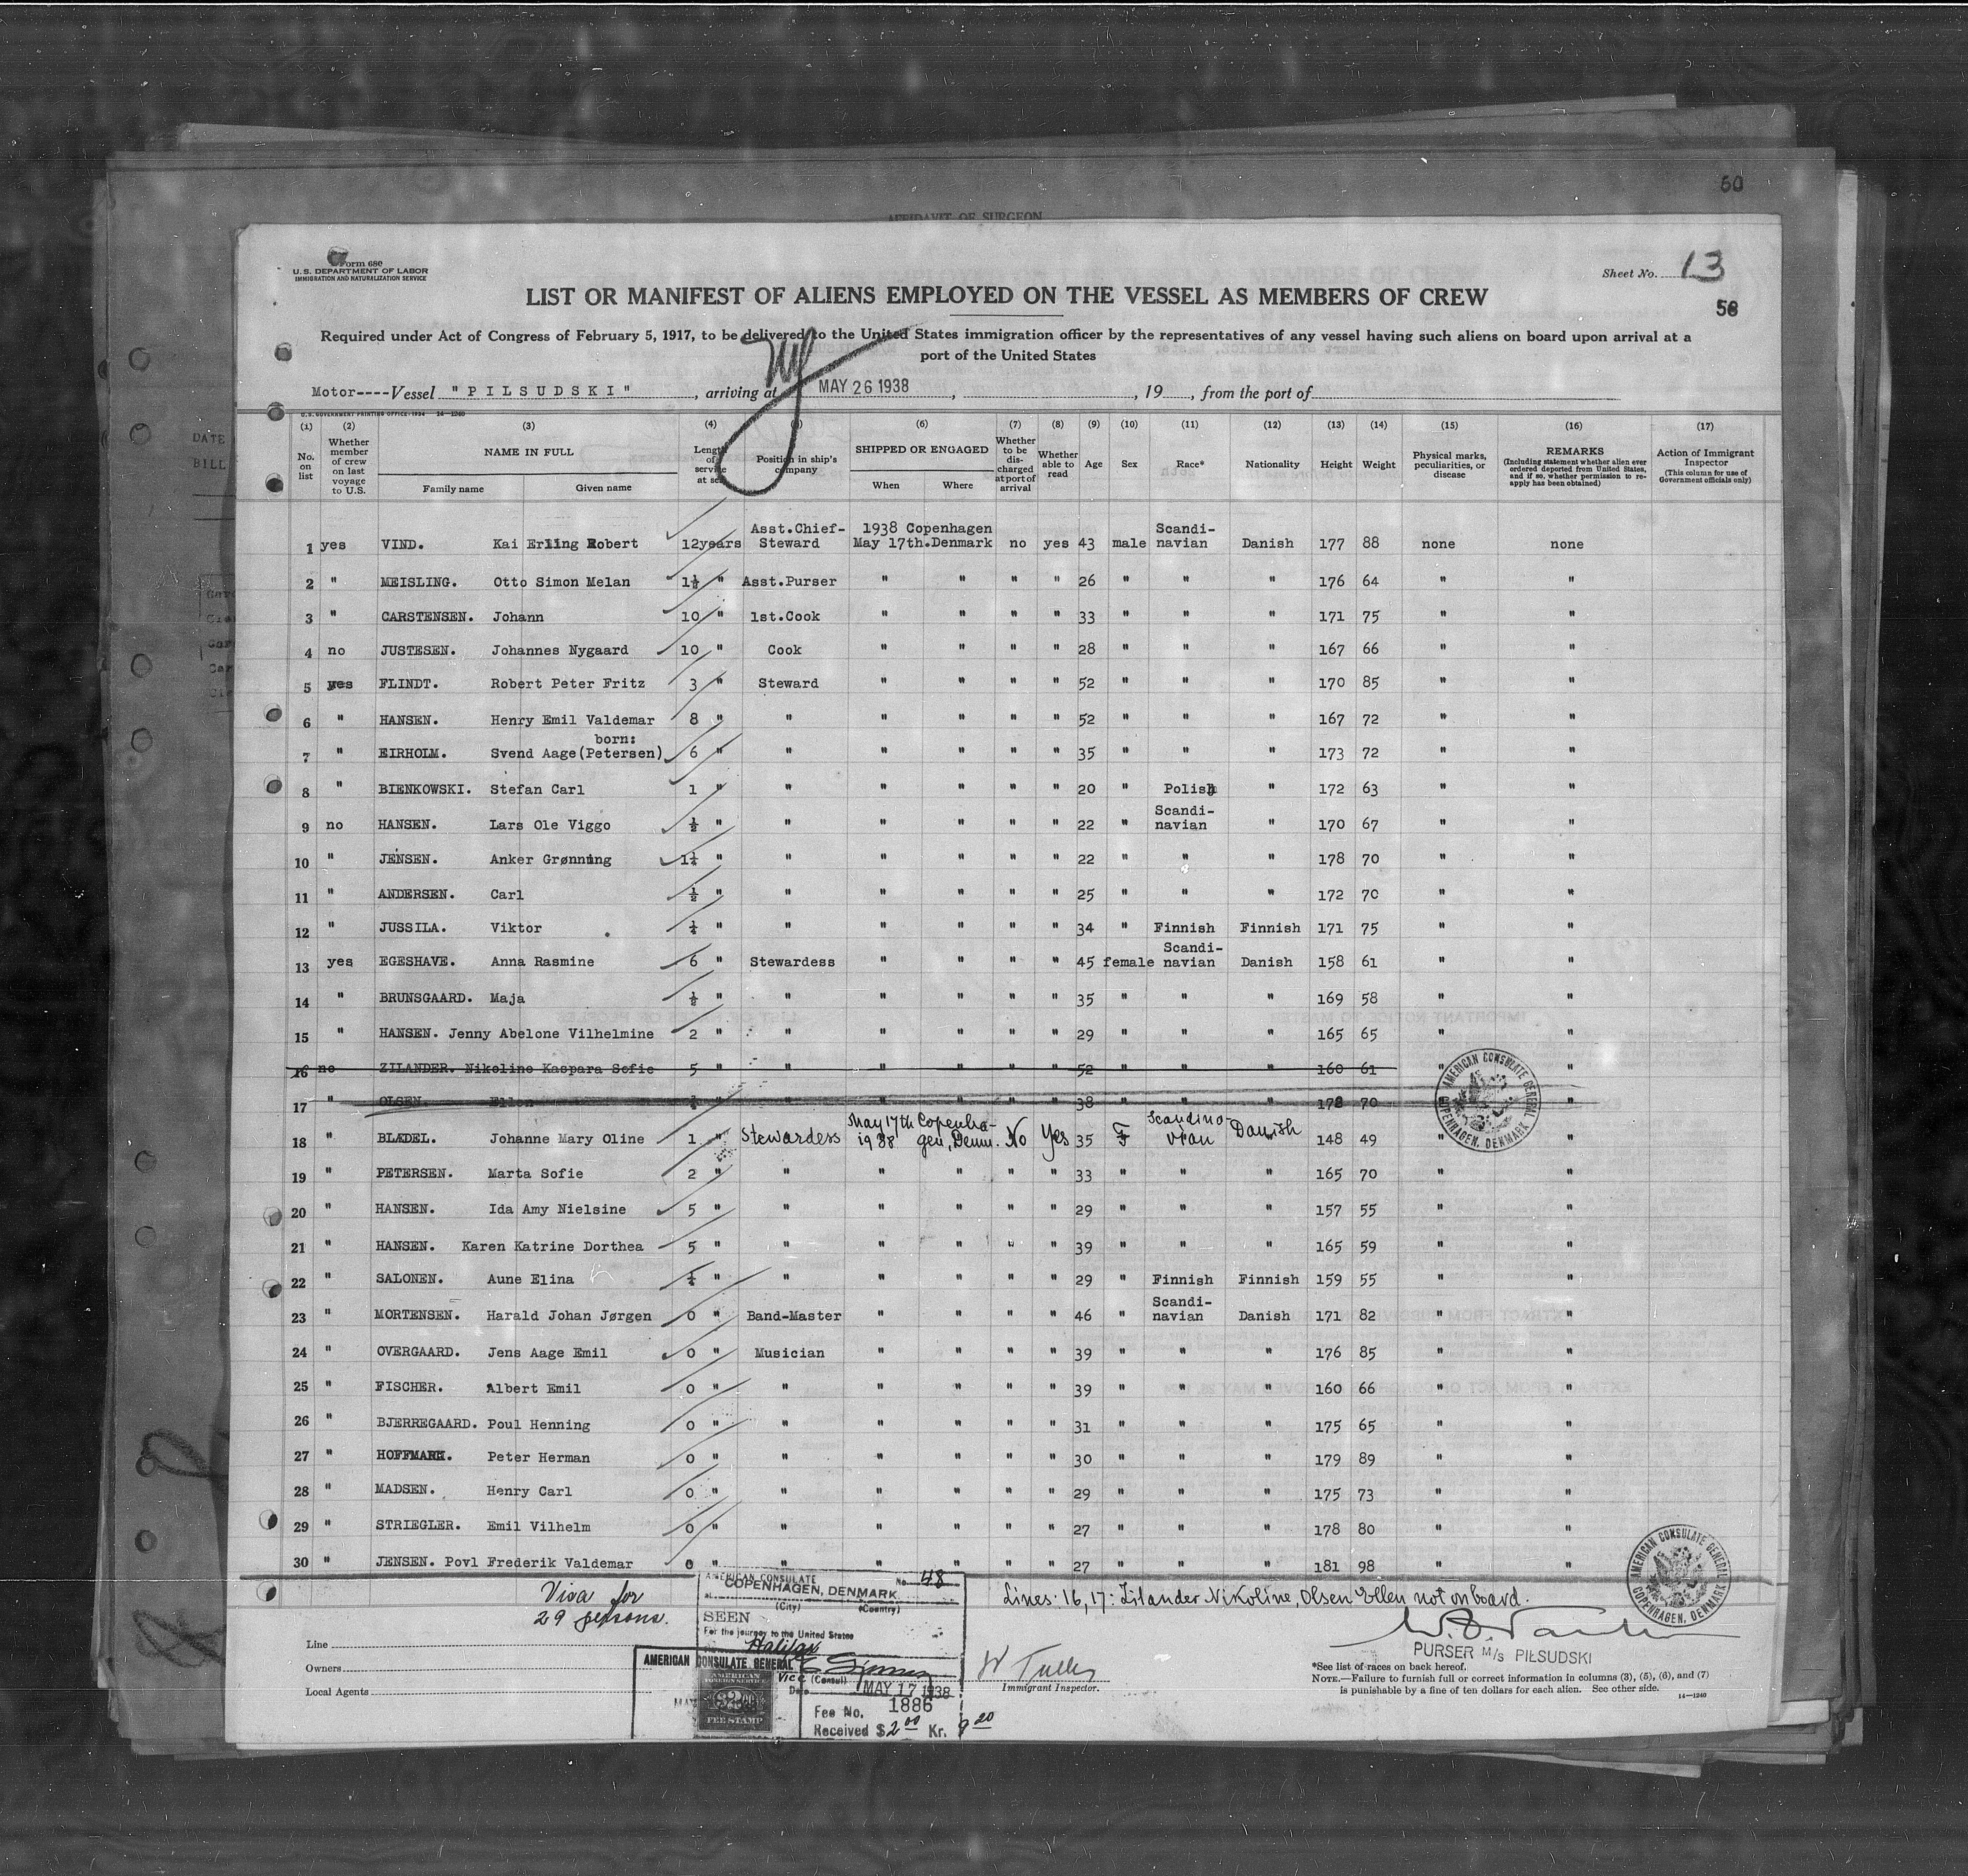 60
AFFIDAVIT OF SURGEON
Form 680
U.S. DEPARTMENT OF LABOR
IMMIGRATION AND NATURALIZATION SERVICE
Sheet No. 13
LIST OR MANIFEST OF ALIENS EMPLOYED ON THE VESSEL AS MEMBERS OF CREW
58
Required under Act of Congress of February 5, 1917, to be delivered to the United States immigration officer by the representatives of any vessel having such aliens on board upon arrival at a
port of the United States
Motor----Vessel "PILSUDSKI", arriving at NY MAY 26 1938, , 19 , from the port of
U.S. GOVERNMENT PRINTING OFFICE: 1934 14-1240
(1) (2) (3) (4) (5) (6) (7) (8) (9) (10) (11) (12) (13) (14) (15) (16) (17)
No. on list
Whether member of crew on last voyage to U.S.
NAME IN FULL
Family name Given name
Length of service at sea
Position in ship's company
SHIPPED OR ENGAGED
When Where
Whether to be discharged at port of arrival
Whether able to read
Age
Sex
Race*
Nationality
Height
Weight
Physical marks, peculiarities, or disease
REMARKS
(Including statement whether alien ever ordered deported from United States, and if so, whether permission to reapply has been obtained)
Action of Immigrant Inspector
(This column for use of Government officials only)
Asst.Chief- 1938 Copenhagen Scandi-
1 yes VIND. Kai Erling Robert 12years Steward May 17th.Denmark no yes 43 male navian Danish 177 88 none none
2 " MEISLING. Otto Simon Melan 1½ " Asst.Purser " " " " 26 " " " 176 64 " "
3 " CARSTENSEN. Johann 10 " 1st.Cook " " " " 33 " " " 171 75 " "
4 no JUSTESEN. Johannes Nygaard 10 " Cook " " " " 28 " " " 167 66 " "
5 yes FLINDT. Robert Peter Fritz 3 " Steward " " " " 52 " " " 170 85 " "
6 " HANSEN. Henry Emil Valdemar 8 " " " " " " 52 " " " 167 72 " "
born:
7 " EIRHOLM. Svend Aage(Petersen) 6 " " " " " " 35 " " " 173 72 " "
8 " BIENKOWSKI. Stefan Carl 1 " " " " " " 20 " Polish " 172 63 " "
Scandi-
9 no HANSEN. Lars Ole Viggo ½ " " " " " " 22 " navian " 170 67 " "
10 " JENSEN. Anker Grønning 1¼ " " " " " " 22 " " " 178 70 " "
11 " ANDERSEN. Carl ½ " " " " " " 25 " " " 172 70 " "
12 " JUSSILA. Viktor ¼ " " " " " " 34 " Finnish Finnish 171 75 " "
Scandi-
13 yes EGESHAVE. Anna Rasmine 6 " Stewardess " " " " 45 female navian Danish 158 61 " "
14 " BRUNSGAARD. Maja ½ " " " " " " 35 " " " 169 58 " "
15 " HANSEN. Jenny Abelone Vilhelmine 2 " " " " " " 29 " " " 165 65 " "
16 no ZILANDER. Nikoline Kaspara Sofie 5 " " " " " " 52 " " " 160 61 "
17 " OLSEN. Ellen " " " " " " 38 " " " 178 70 "
May 17th Copenha- Scandina-
18 " BLÆDEL. Johanne Mary Oline 1 " Stewardess 1938 gen, Denm. No Yes 35 F vian Danish 148 49 " "
19 " PETERSEN. Marta Sofie 2 " " " " " " 33 " " " 165 70 " "
20 " HANSEN. Ida Amy Nielsine 5 " " " " " " 29 " " " 157 55 " "
21 " HANSEN. Karen Katrine Dorthea 5 " " " " " " 39 " " " 165 59 " "
22 " SALONEN. Aune Elina ¼ " " " " " " 29 " Finnish Finnish 159 55 " "
Scandi-
23 " MORTENSEN. Harald Johan Jørgen 0 " Band-Master " " " " 46 " navian Danish 171 82 " "
24 " OVERGAARD. Jens Aage Emil 0 " Musician " " " " 39 " " " 176 85 " "
25 " FISCHER. Albert Emil 0 " " " " " " 39 " " " 160 66 " "
26 " BJERREGAARD. Poul Henning 0 " " " " " " 31 " " " 175 65 " "
27 " HOFFMANN. Peter Herman 0 " " " " " " 30 " " " 179 89 " "
28 " MADSEN. Henry Carl 0 " " " " " " 29 " " " 175 73 " "
29 " STRIEGLER. Emil Vilhelm 0 " " " " " " 27 " " " 178 80 " "
30 " JENSEN. Povl Frederik Valdemar 0 " " " " " " 27 " " " 181 98 " "
AMERICAN CONSULATE GENERAL
COPENHAGEN, DENMARK.
AMERICAN CONSULATE GENERAL
COPENHAGEN, DENMARK
Visa for
29 persons.
Lines: 16, 17: Zilander Nikoline, Olsen Ellen not on board.
AMERICAN CONSULATE No. 48
at COPENHAGEN, DENMARK
(City) (Country)
SEEN
For the journey to the United States
Halifax
AMERICAN CONSULATE GENERAL
Vice (Consul)
Date MAY 17 1938
AMERICAN
FOREIGN SERVICE
FEE STAMP
Fee No. 1886
Received $ 2 00 Kr. 9 20
Line
Owners
Local Agents
Immigrant Inspector.
PURSER M/S PIŁSUDSKI
*See list of races on back hereof.
NOTE.—Failure to furnish full or correct information in columns (3), (5), (6), and (7)
is punishable by a fine of ten dollars for each alien. See other side.
14-1240